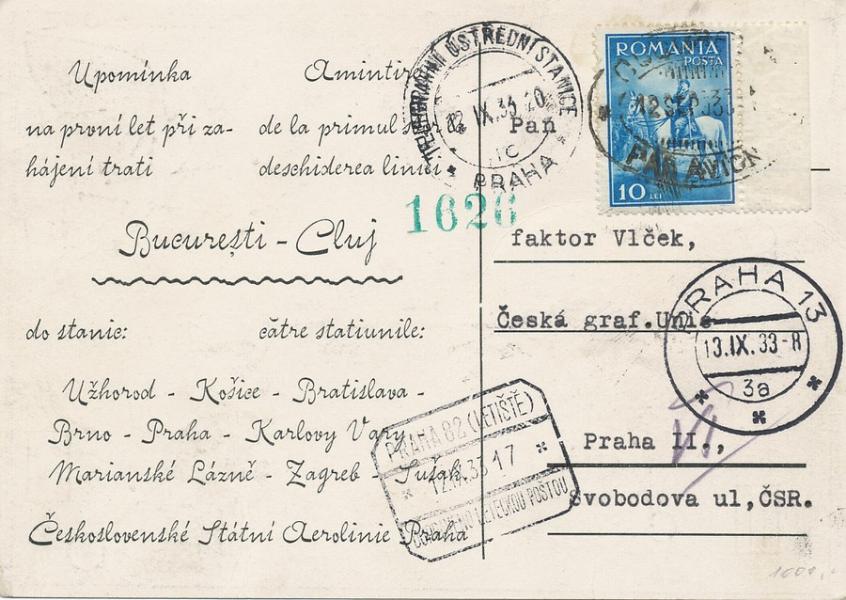 Upomínka
na první let při za-
hájení trati
Amintire
de la primul sbor
deschiderea liniei
București - Cluj
do stanic:
către stațiunile:
Užhorod - Košice - Bratislava -
Brno - Praha - Karlovy Vary
Marianské Lázně - Zagreb - Sušak
Československé Státní Aerolinie Praha
TELEGRAFNÍ ÚSTŘEDNÍ STANICE
12 IX. 33 20
1c
PRAHA
1626
ROMANIA
POSTA
10 LEI
12 SEP 933
PAR AVION
Pan
faktor Vlček,
Česká graf.Unie
Praha II.,
Svobodova ul,ČSR.
PRAHA 13
13.IX. 33-8
3a
PRAHA 82 (LETIŠTĚ)
12.IX.33 17
LETECKOU POŠTOU
1600,-